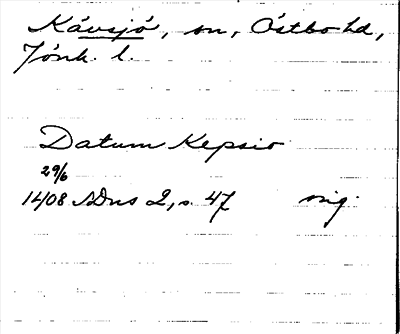 Kävsjö, sn, Östbo hd,
Jönk. l.
Datum Kepsio
29/6
1408 SDns 2, s. 47 orig.